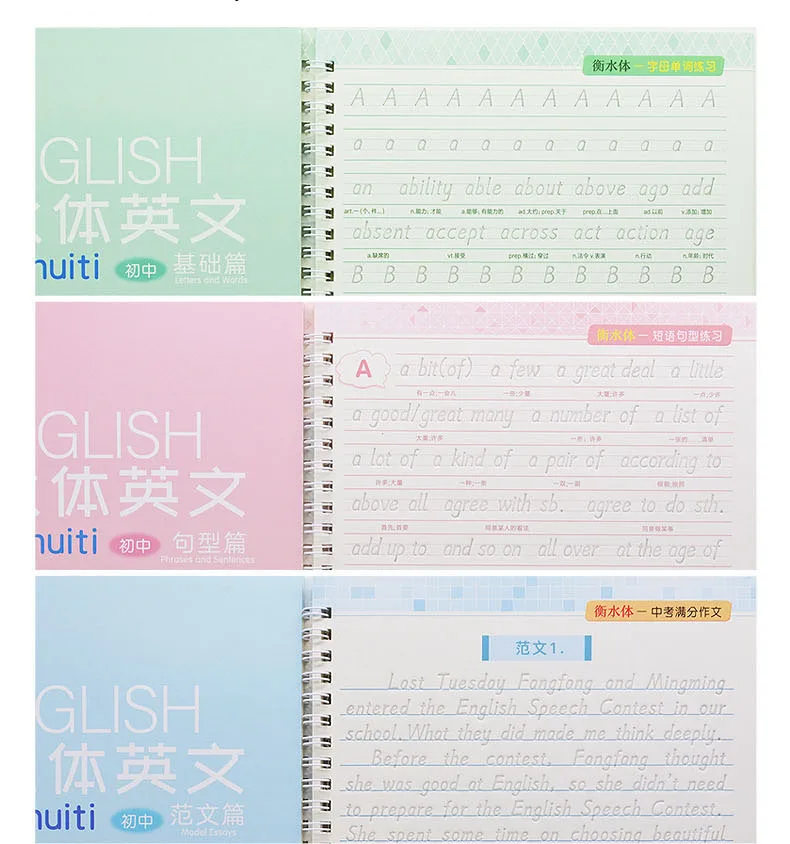 GLISH
体英文
huiti 初中 基础篇
Letters and Words
衡水体 — 字母单词练习
A A A A A A A A A A A A
a a a a a a a a a a a a
an ability able about above ago add
art.一 (个、件...) n.能力; 才能 a.能够; 有能力的 ad.大约; prep.关于 prep.在...上面 ad.以前 v.添加; 增加
absent accept across act action age
a.缺席的 vt.接受 prep.横过; 穿过 n.法令 v.表演 n.行动 n.年龄; 时代
B B B B B B B B B B B B
GLISH
体英文
huiti 初中 句型篇
Phrases and Sentences
衡水体 — 短语句型练习
A a bit(of) a few a great deal a little
有一点;一会儿 一些;少量 大量;许多 一点;少许
a good/great many a number of a list of
大量;许多 一些; 许多 一张的......清单
a lot of a kind of a pair of according to
许多;大量 一种;一类 一双;一副 根据;按照
above all agree with sb. agree to do sth.
首先;首要 同意某人的看法 同意做某事
add up to and so on all over at the age of
GLISH
体英文
huiti 初中 范文篇
Model Essays
衡水体 — 中考满分作文
范文1.
Last Tuesday Fangfang and Mingming
entered the English Speech Contest in our
school. What they did made me think deeply.
Before the contest, Fangfang thought
she was good at English, so she didn't need
to prepare for the English Speech Contest.
She spent some time on choosing beautiful